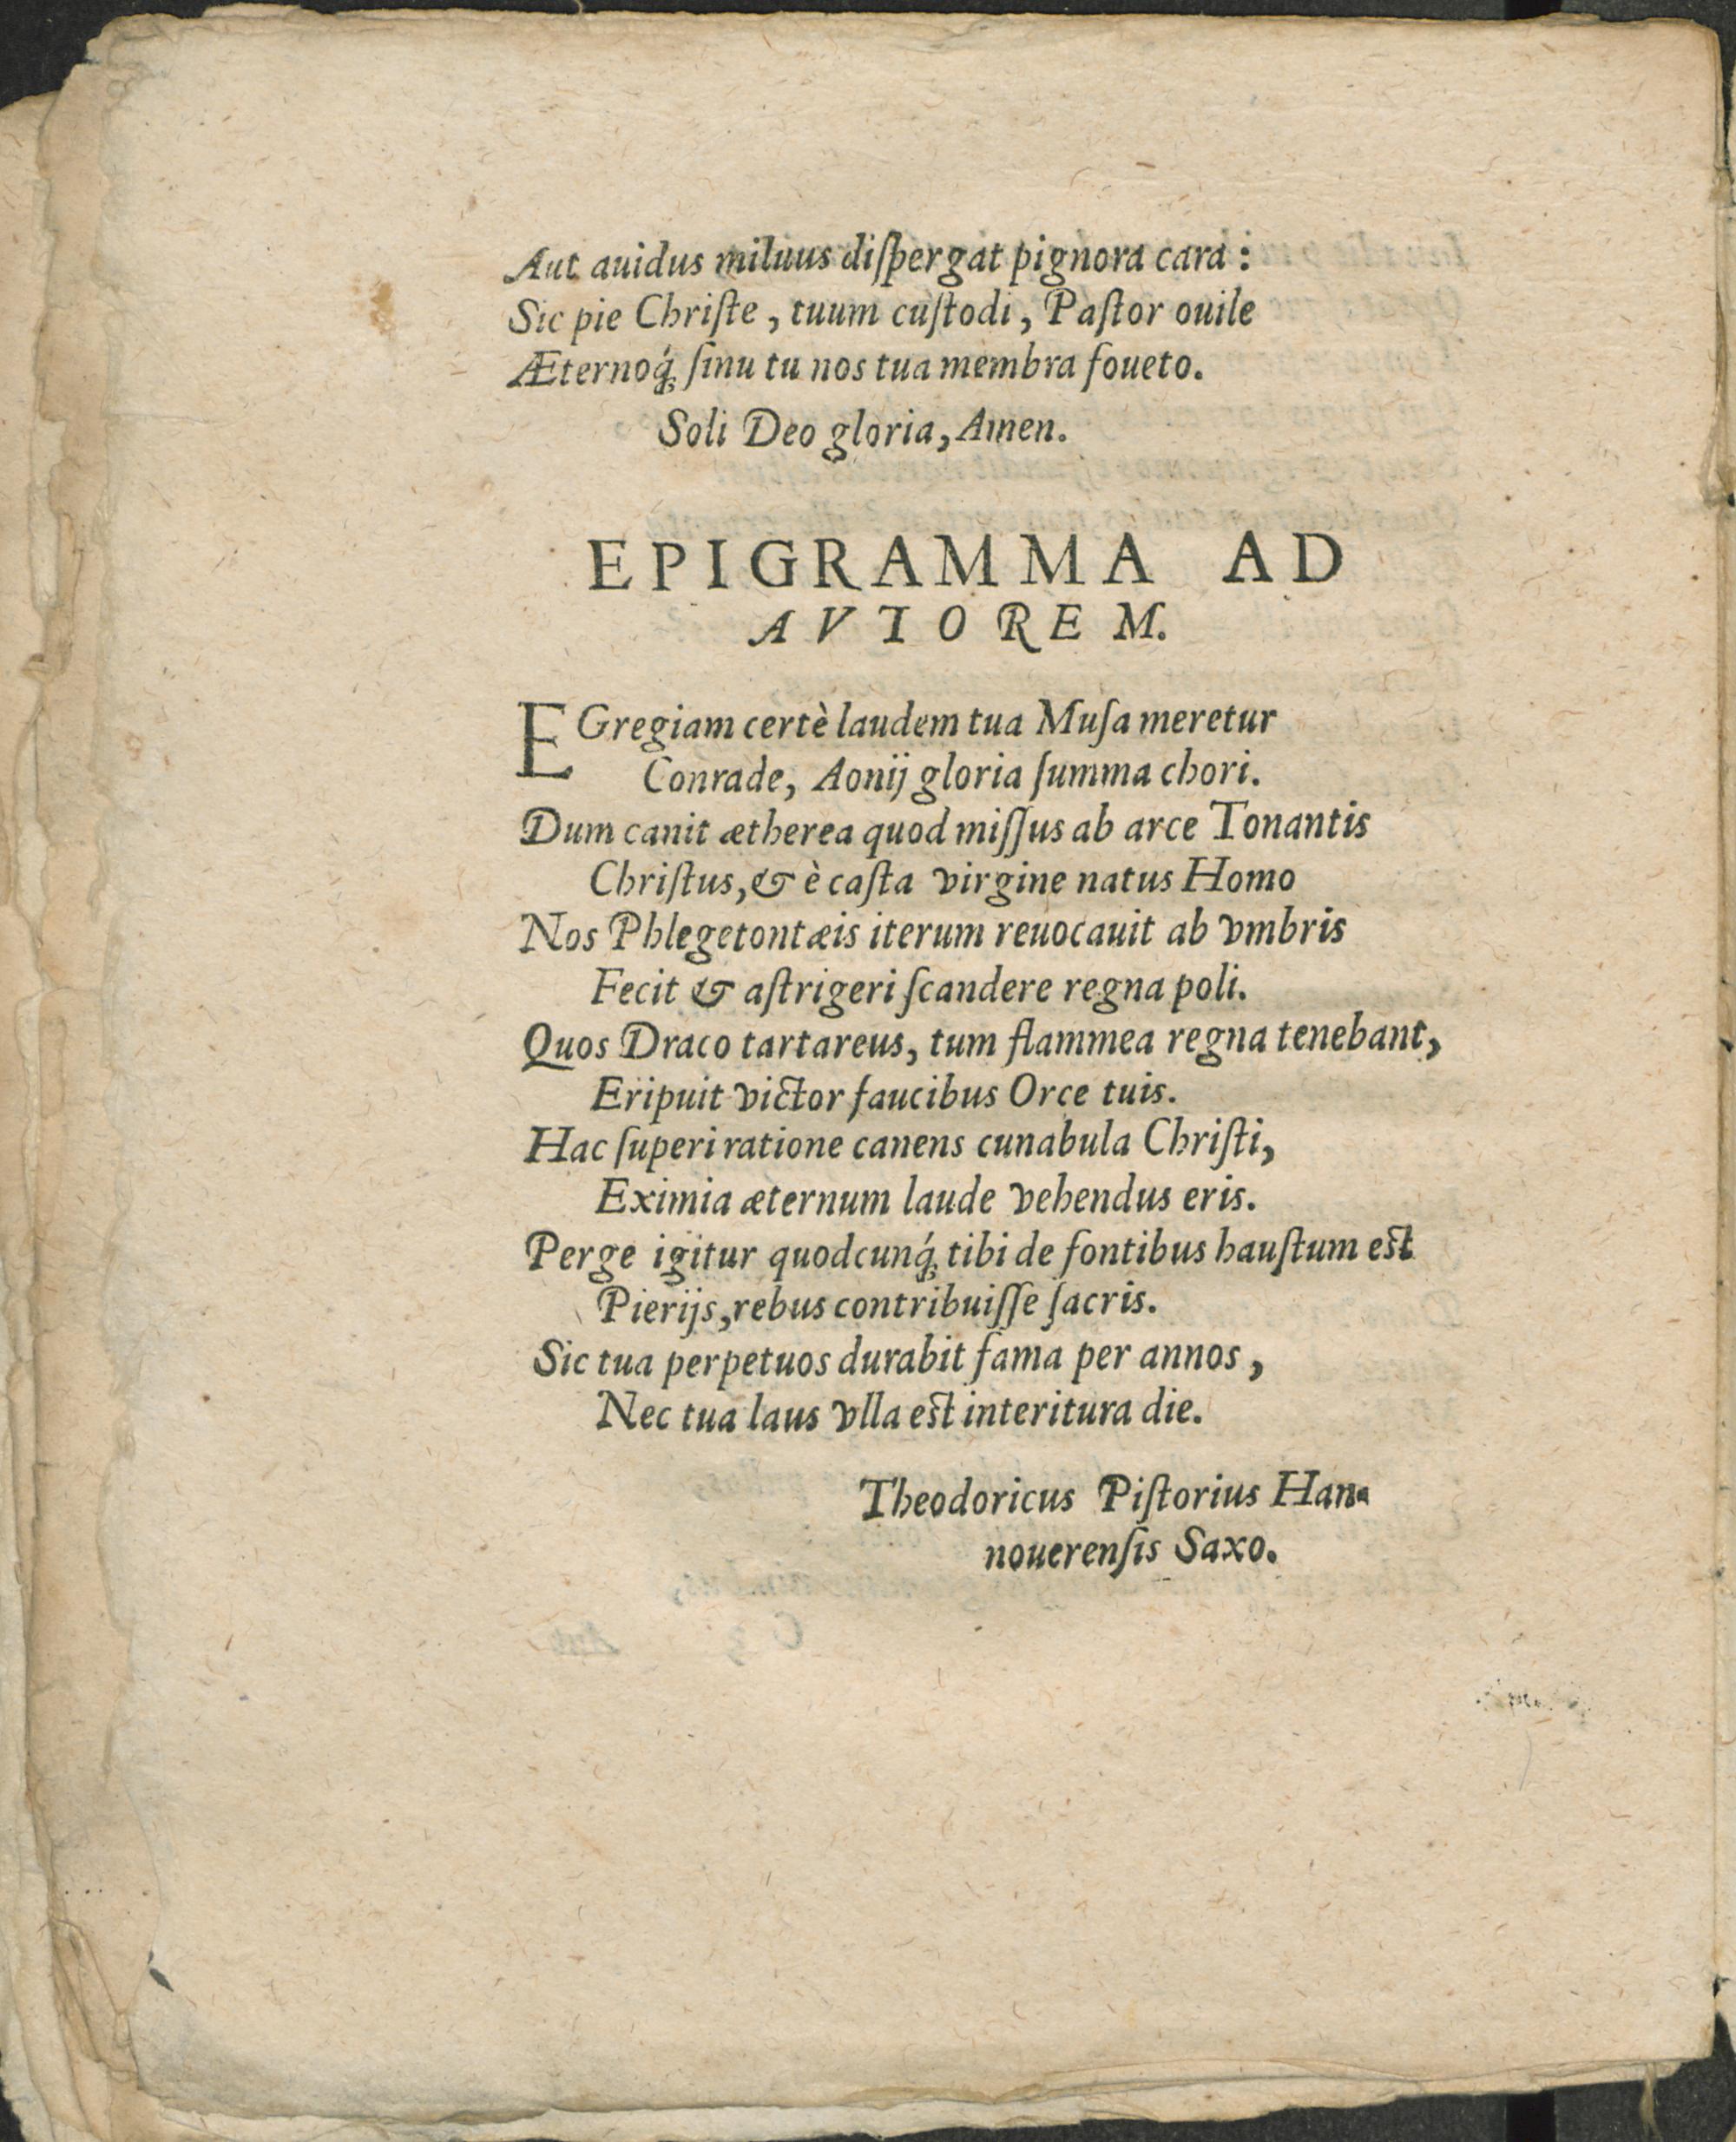 Aut auidus miluus diſpergat pignora cara:
Sic pie Chriſte, tuum cuſtodi, Paſtor ouile
Æternoq́; ſinu tu nos tua membra foueto.
Soli Deo gloria, Amen.
EPIGRAMMA AD
AVTOREM.
EGregiam certè laudem tua Muſa meretur
Conrade, Aonij gloria ſumma chori.
Dum canit ætherea quod miſſus ab arce Tonantis
Chriſtus, & è caſta virgine natus Homo
Nos Phlegetontæis iterum reuocauit ab vmbris
Fecit & aſtrigeri ſcandere regna poli.
Quos Draco tartareus, tum flammea regna tenebant,
Eripuit victor faucibus Orce tuis.
Hac ſuperi ratione canens cunabula Chriſti,
Eximia æternum laude vehendus eris.
Perge igitur quodcunq́; tibi de fontibus hauſtum eſt
Pierijs, rebus contribuiſſe ſacris.
Sic tua perpetuos durabit fama per annos,
Nec tua laus vlla eſt interitura die.
Theodoricus Piſtorius Han-
nouerenſis Saxo.